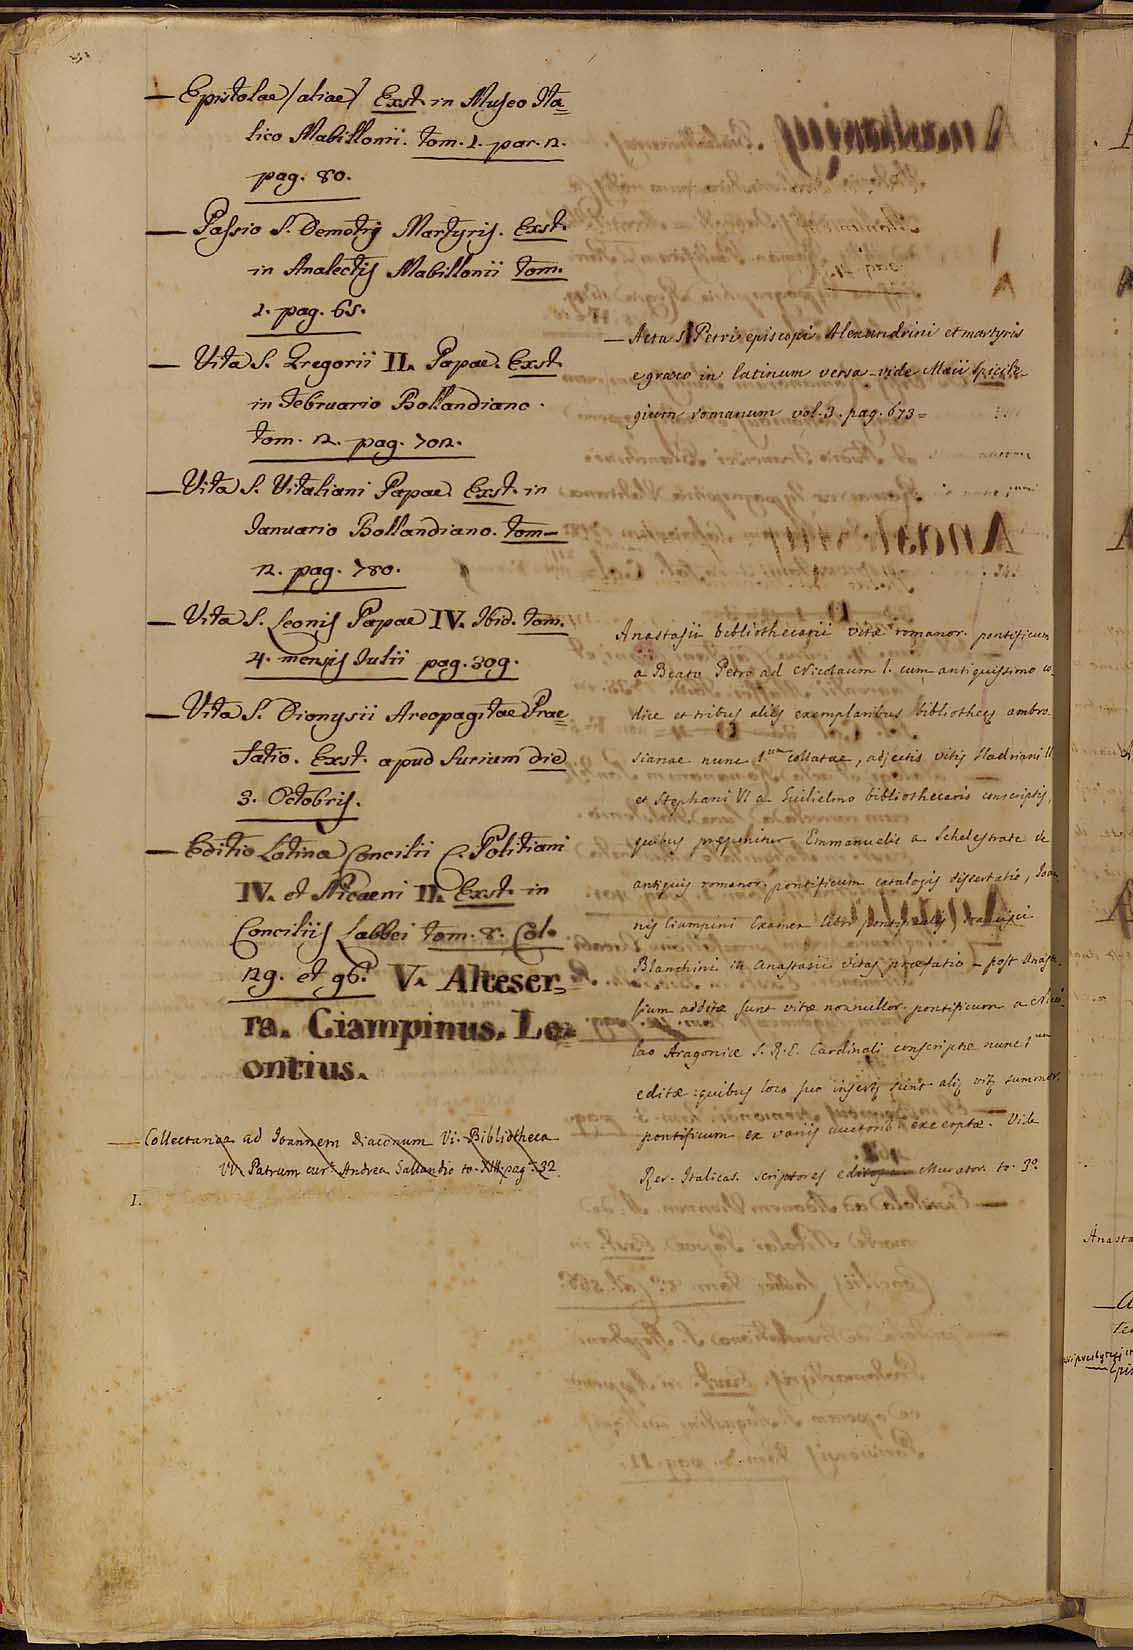 — Epistolae (aliae) Exst. in Museo Ita=
lico Mabillonii. tom. 1. par. 2.
pag. 80.
— Passio S. Demetrij Martyris. Exst.
in Analectis Mabillonii tom.
1. pag. 65.
— Vita S. Gregorii II. Papae. Exst.
in Februario Bollandiano.
tom. 2. pag. 702.
— Vita S. Vitaliani Papae. Exst. in
Ianuario Bollandiano. tom—
2. pag. 780.
— Vita S. Leonis Papae IV. Ibid. tom.
4. mensis Iulii pag. 309.
— Vita S. Dionysii Areopagitae Prae
fatio. Exst. apud Surium die
3. Octobris.
— Editio Latina Concilii C. Politiani
IV. et Nicaeni II. Exst. in
Conciliis Labbei tom. 8. Col.
29. et 96. V. Alteser=
ra. Ciampinus. Le=
ontius.
— Collectanea ad Ioannem diaconum Vi. Bibliotheca
VV Patrum cur. Andrea Gallandio to. XIII. pag. 32
I.
— Acta S. Petri episcopi Alexandrini et martyris
e græco in latinum versa - vide Maii Spicile-
gium romanum vol. 3. pag. 673 =
Anastasii bibliothecarii vitæ romanor. pontificum
a Beato Petro ad Nicolaum I. cum antiquissimo co-
dice et tribus aliis exemplaribus bibliothecæ ambro
sianae nunc 1um collatae, adjectis vitis Hadriani II
et Stephani VI a Guilielmo bibliothecario conscriptis,
quibus præponuntur Emmanuelis a Schelestrate de
antiquis romanor. pontificum catalogis dissertatio, Ioan
nis Ciampini Examen libri pontificalis, Francisci
Blanchini in Anastasii vitas præfatio - post Anasta
sium additæ sunt vitæ nonnullor. pontificum a Nico
lao Aragoniæ S. R. E. Cardinali conscriptæ nunc 1um
editæ: quibus loco suo insertæ sunt aliæ vitæ summor.
pontificum ex variis auctorib. excerptæ. Vide
Rer. Italicar. scriptores Murator. to. 3º